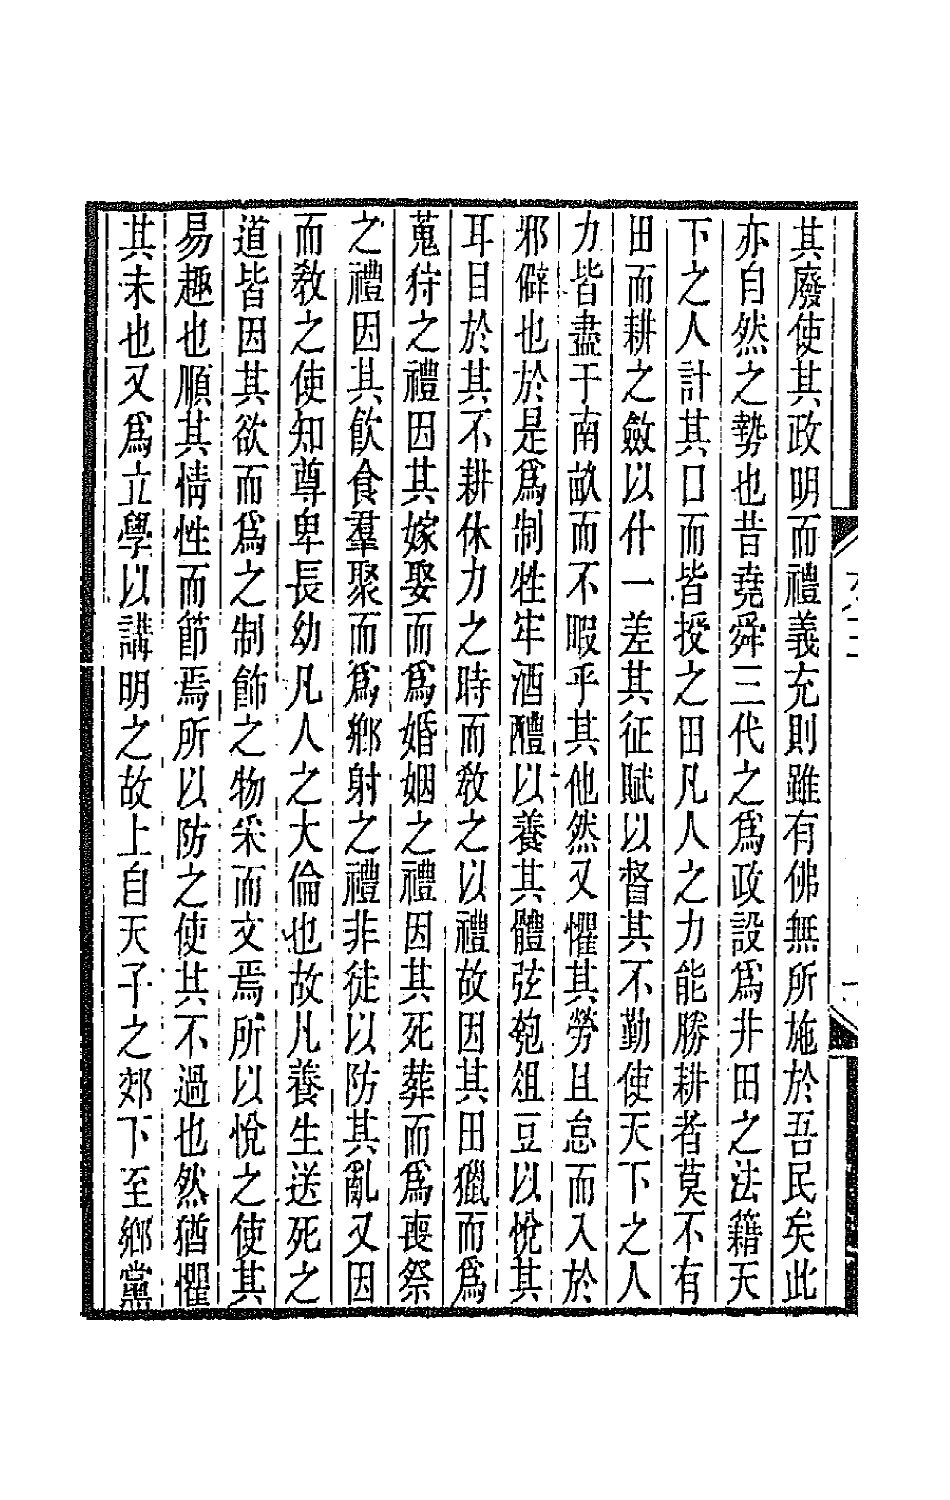 其廢使其政明而禮義充則雖有佛無所施於吾民矣此
亦自然之勢也昔堯舜三代之爲政設爲井田之法籍天
下之人計其口而皆授之田凡人之力能勝耕者莫不有
田而耕之斂以什一差其征賦以督其不勤使天下之人
力皆盡于南畝而不暇乎其他然又懼其勞且怠而入於
邪僻也於是爲制牲牢酒醴以養其體弦匏俎豆以悅其
耳目於其不耕休力之時而敎之以禮故因其田獵而爲
蒐狩之禮因其嫁娶而爲婚姻之禮因其死葬而爲喪祭
之禮因其飮食羣聚而爲鄉射之禮非徒以防其亂又因
而敎之使知尊卑長幼凡人之大倫也故凡養生送死之
道皆因其欲而爲之制飾之物采而文焉所以悅之使其
易趣也順其情性而節焉所以防之使其不過也然猶懼
其未也又爲立學以講明之故上自天子之郊下至鄉黨